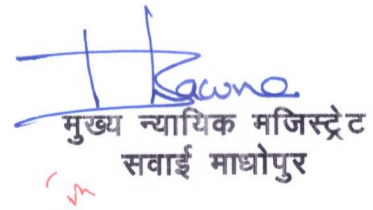 मुख्य न्यायिक मजिस्ट्रेट
सवाई माधोपुर